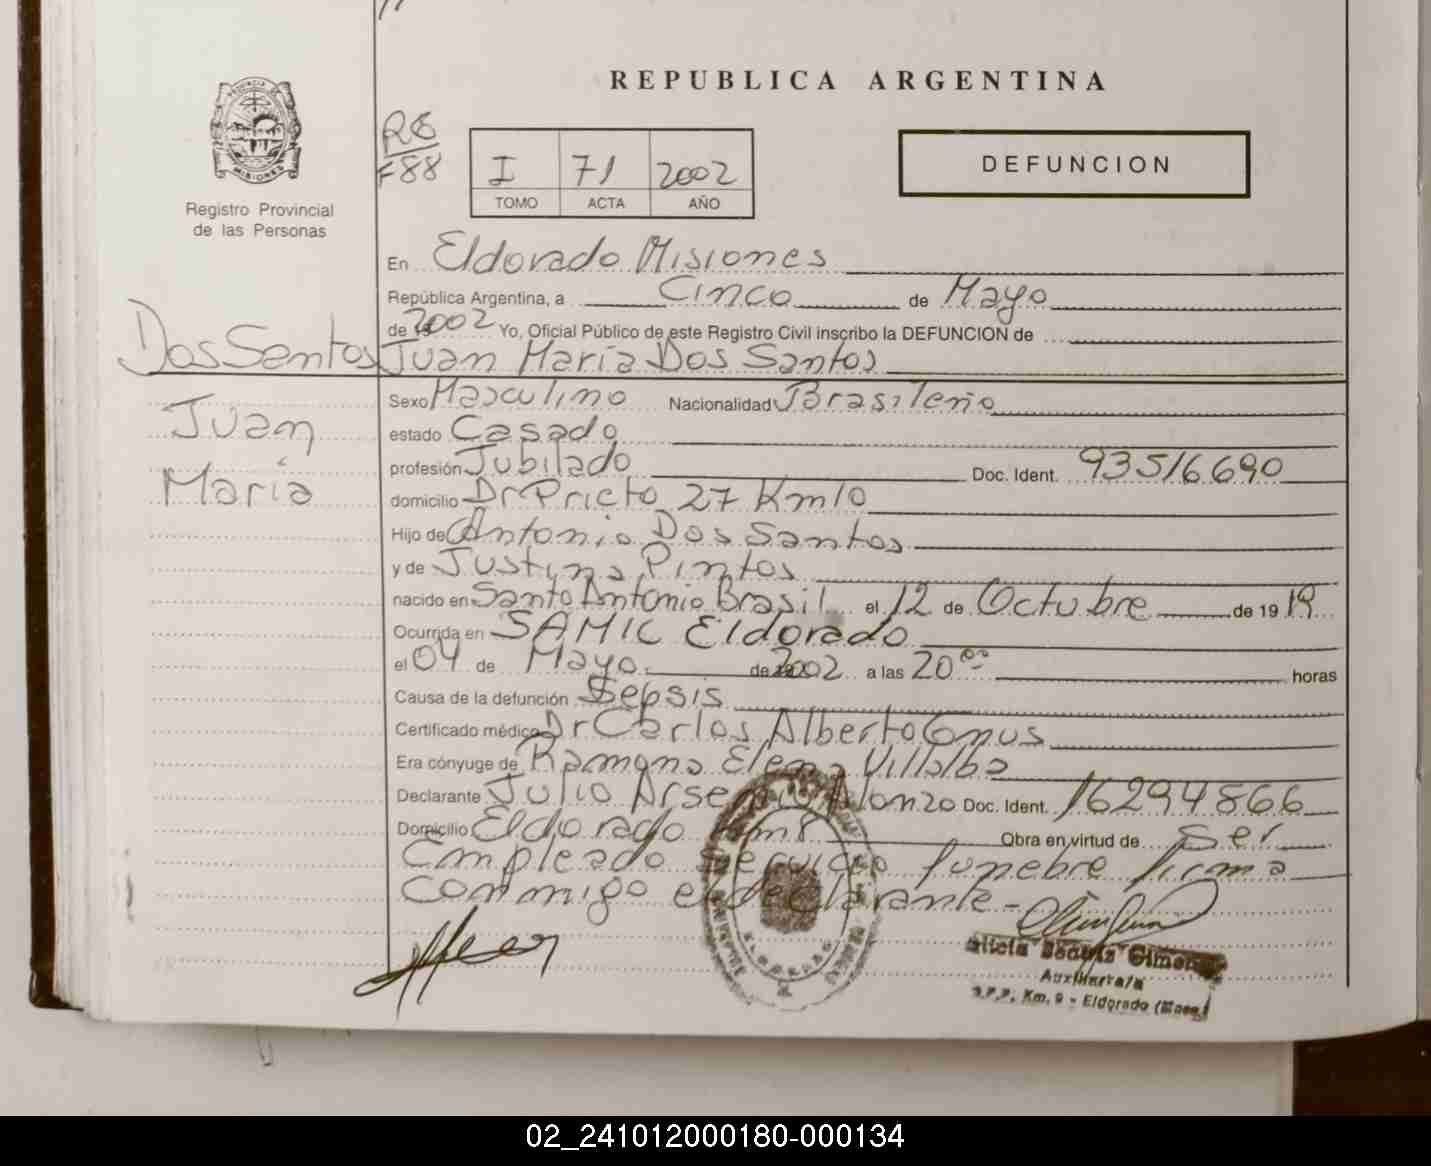 REPUBLICA ARGENTINA
DEFUNCION
R6
F88
I 71 2002
TOMO ACTA AÑO
PROVINCIA DE
MISIONES
Registro Provincial
de las Personas
En Eldorado Misiones
República Argentina, a Cinco de Mayo
de 2002 Yo, Oficial Público de este Registro Civil inscribo la DEFUNCION de
Dos Santos Juan Maria Dos Santos
Juan
María
Sexo Masculino Nacionalidad Brasileño
estado Casado
profesión Jubilado Doc. Ident. 93516690
domicilio Dr Prieto 27 Km 10
Hijo de Antonio Dos Santos
y de Justina Pintos
nacido en Santo Antonio Brasil el 12 de Octubre de 19 19
Ocurrida en SAMIC Eldorado
el 04 de Mayo de 2002 a las 20 00 horas
Causa de la defunción Sepsis
Certificado médico Dr Carlos Alberto
Era cónyuge de Ramona Elena Villalba
Declarante Julio Arsenio Alonzo Doc. Ident. 16294866
Domicilio Eldorado Km8 Obra en virtud de Ser
Empleado Servicio funebre firma
conmigo el declarante-
Alicia Gimenez
Auxiliar
R.P.P. Km. 9 - Eldorado (Mnes)
02_241012000180-000134